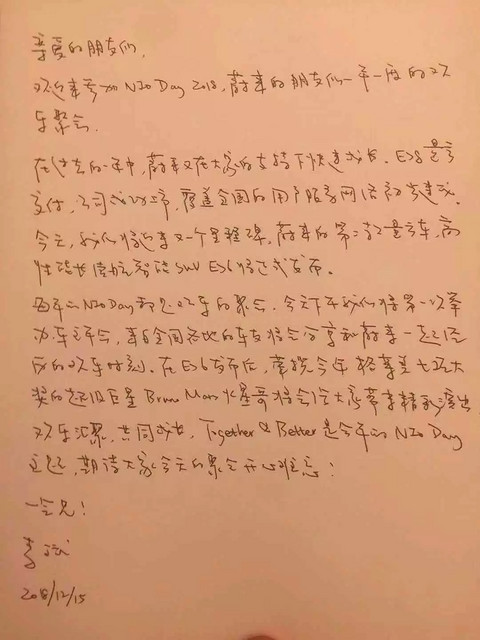 亲爱的朋友们，
欢迎来参加 NIO Day 2018，蔚来的朋友们一年一度的欢
乐聚会。
在过去的一年中，蔚来又在大家的支持下快速成长。ES8 量产
交付，公司成功上市，覆盖全国的用户服务网络初步建成。
今天，我们将迎来又一个里程碑，蔚来的第二款量产车，高
性能长续航智能 SUV ES6 将正式发布。
每年的 NIO Day 都是欢乐的聚会。今天下午我们将第一次举
办车主年会，来自全国各地的车友将会分享和蔚来一起经
历的欢乐时刻。在 ES6 发布后，囊括今年格莱美七项大
奖的超级巨星 Bruno Mars 火星哥将会给大家带来精彩演出
欢乐汇聚，共同成长，Together & Better 是今年的 NIO Day
主题，期待大家今天的聚会开心难忘！
一会见！
李斌
2018/12/15